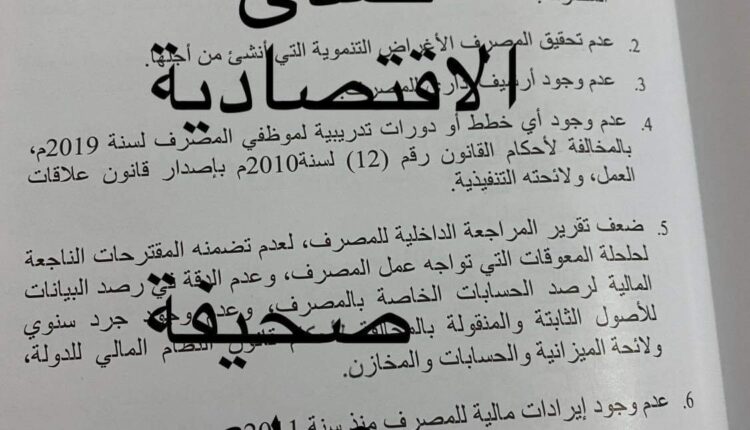 2. عدم تحقيق المصرف الأغراض التنموية التي أنشئ من أجلها.
الاقتصادية
3. عدم وجود أرشيف
4. عدم وجود أي خطط أو دورات تدريبية لموظفي المصرف لسنة 2019م،
بالمخالفة لأحكام القانون رقم (12) لسنة2010م بإصدار قانون علاقات
العمل، ولائحته التنفيذية.
5. ضعف تقرير المراجعة الداخلية للمصرف، لعدم تضمنه المقترحات الناجعة
لحلحلة المعوقات التي تواجه عمل المصرف، وعدم الدقة في رصد البيانات
المالية لرصد الحسابات الخاصة بالمصرف، وعدم وجود جرد سنوي
صحيفة
للأصول الثابتة والمنقولة النظام المالي للدولة،
ولائحة الميزانية والحسابات والمخازن.
6. عدم وجود إيرادات مالية للمصرف منذ سنة